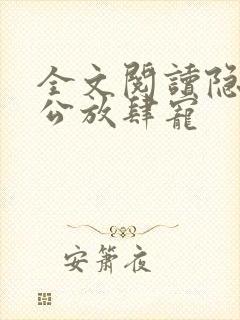 全文閱讀隐
公放肆寵
安蕭夜